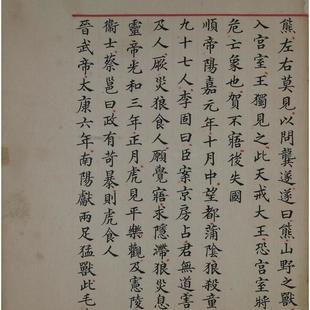 熊左右莫見以問龔遂遂曰熊山野之獸
入宮室王獨見之此天戒大王恐宮室將
危亡象也賀不寤後失國
順帝陽嘉元年十月中望都蒲陰狼殺童
九十七人李固曰臣案京房占君無道害
及人厥災狼食人厥覺寤求隱滯狼災息
靈帝光和三年正月虎見平樂觀及憲陵
衞士蔡邕曰政有苛暴則虎食人
晉武帝太康六年南陽獻兩足猛獸此毛